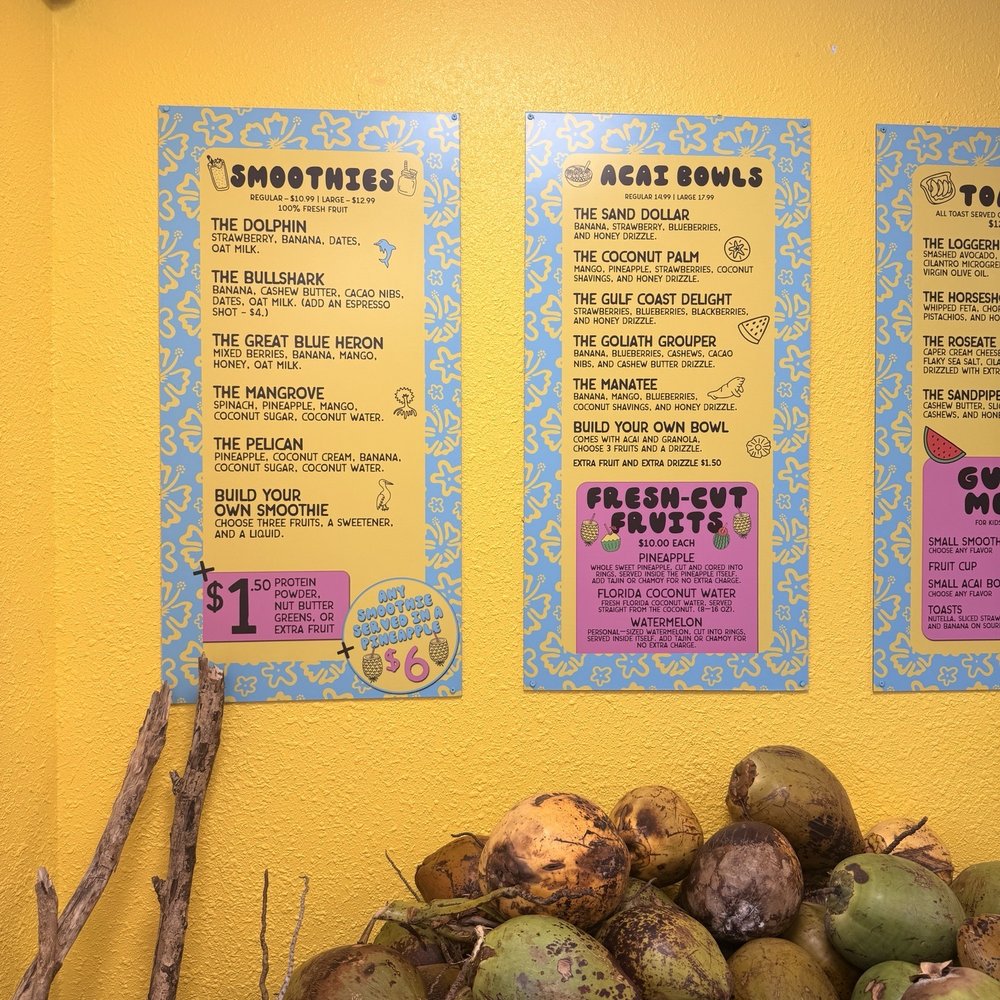 SMOOTHIES
REGULAR – $10.99 | LARGE – $12.99
100% FRESH FRUIT
THE DOLPHIN
STRAWBERRY, BANANA, DATES,
OAT MILK.
THE BULLSHARK
BANANA, CASHEW BUTTER, CACAO NIBS,
DATES, OAT MILK. (ADD AN ESPRESSO
SHOT – $4.)
THE GREAT BLUE HERON
MIXED BERRIES, BANANA, MANGO,
HONEY, OAT MILK.
THE MANGROVE
SPINACH, PINEAPPLE, MANGO,
COCONUT SUGAR, COCONUT WATER.
THE PELICAN
PINEAPPLE, COCONUT CREAM, BANANA,
COCONUT SUGAR, COCONUT WATER.
BUILD YOUR
OWN SMOOTHIE
CHOOSE THREE FRUITS, A SWEETENER,
AND A LIQUID.
+
$1.50
PROTEIN
POWDER,
NUT BUTTER
GREENS, OR
EXTRA FRUIT
ANY
SMOOTHIE
SERVED IN A
PINEAPPLE
+ $6
ACAI BOWLS
REGULAR 14.99 | LARGE 17.99
THE SAND DOLLAR
BANANA, STRAWBERRY, BLUEBERRIES,
AND HONEY DRIZZLE.
THE COCONUT PALM
MANGO, PINEAPPLE, STRAWBERRIES, COCONUT
SHAVINGS, AND HONEY DRIZZLE.
THE GULF COAST DELIGHT
STRAWBERRIES, BLUEBERRIES, BLACKBERRIES,
AND HONEY DRIZZLE.
THE GOLIATH GROUPER
BANANA, BLUEBERRIES, CASHEWS, CACAO
NIBS, AND CASHEW BUTTER DRIZZLE.
THE MANATEE
BANANA, MANGO, BLUEBERRIES,
COCONUT SHAVINGS, AND HONEY DRIZZLE.
BUILD YOUR OWN BOWL
COMES WITH ACAI AND GRANOLA,
CHOOSE 3 FRUITS AND A DRIZZLE.
EXTRA FRUIT AND EXTRA DRIZZLE $1.50
FRESH-CUT
FRUITS
$10.00 EACH
PINEAPPLE
WHOLE SWEET PINEAPPLE, CUT AND CORED INTO
RINGS, SERVED INSIDE THE PINEAPPLE ITSELF.
ADD TAJIN OR CHAMOY FOR NO EXTRA CHARGE.
FLORIDA COCONUT WATER
FRESH FLORIDA COCONUT WATER, SERVED
STRAIGHT FROM THE COCONUT. (8–16 OZ).
WATERMELON
PERSONAL-SIZED WATERMELON, CUT INTO RINGS,
SERVED INSIDE ITSELF. ADD TAJIN OR CHAMOY FOR
NO EXTRA CHARGE.
TO
ALL TOAST SERVED
$1
THE LOGGERH
SMASHED AVOCADO,
CILANTRO MICROGRE
VIRGIN OLIVE OIL.
THE HORSESH
WHIPPED FETA, CHO
PISTACHIOS, AND HO
THE ROSEATE
CAPER CREAM CHEES
FLAKY SEA SALT, CILA
DRIZZLED WITH EXTR
THE SANDPIPE
CASHEW BUTTER, SL
CASHEWS, AND HON
GU
FOR KID
SMALL SMOOTH
CHOOSE ANY FLAVOR
FRUIT CUP
SMALL ACAI BO
CHOOSE ANY FLAVOR
TOASTS
NUTELLA, SLICED STRAW
AND BANANA ON SOUR